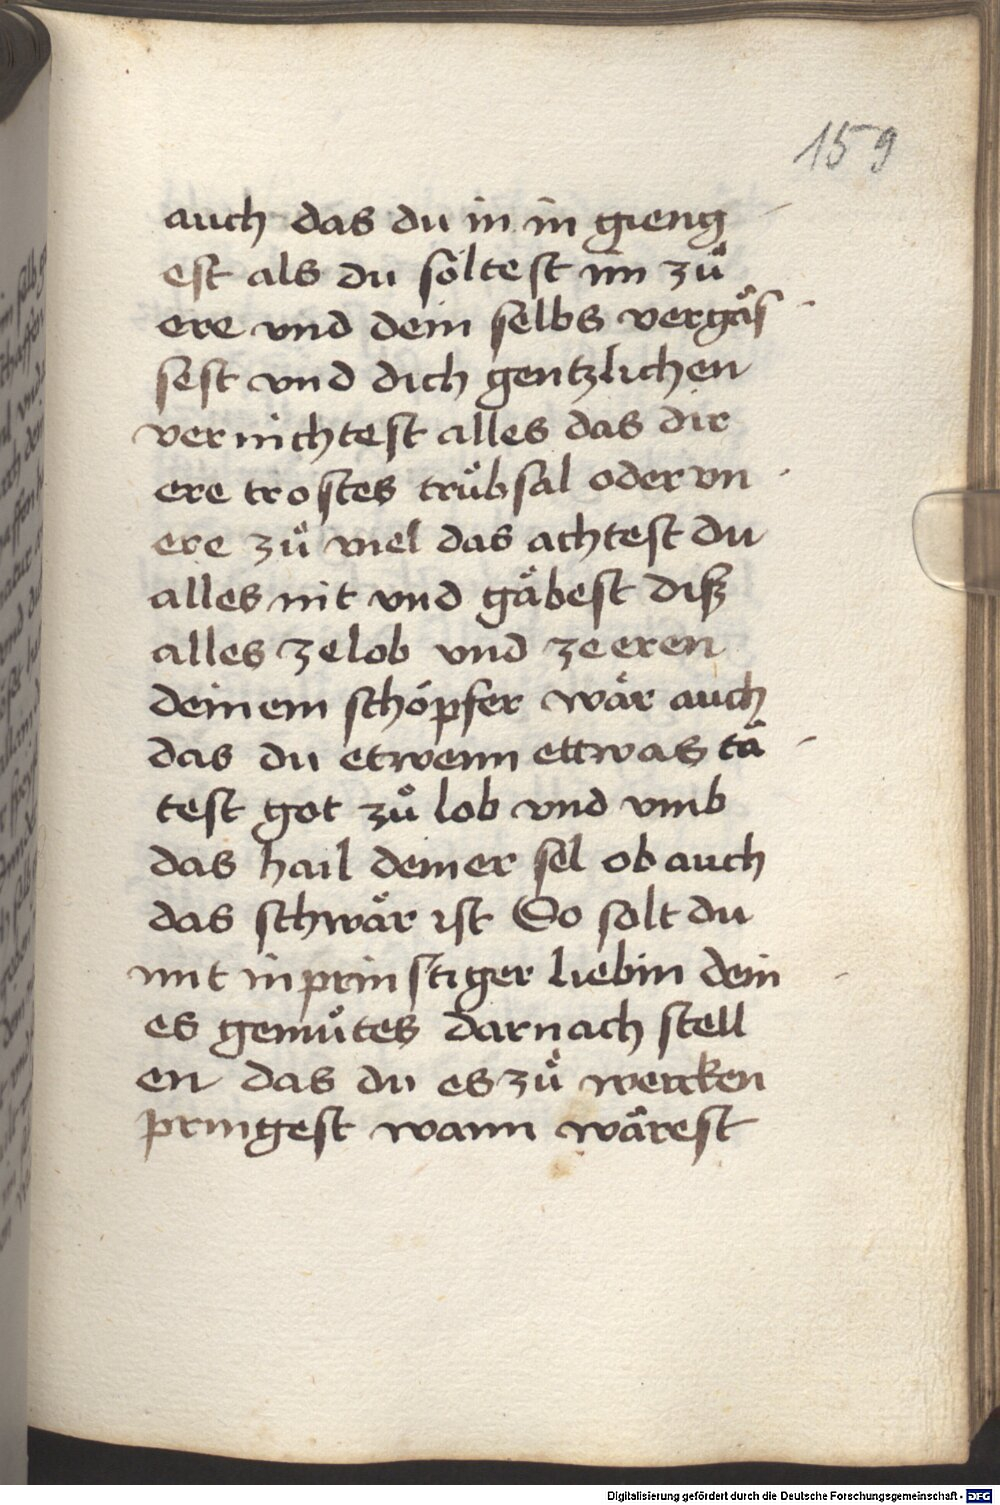 159
auch das du in in gieng
est als du söltest im zů
ere vnd dein selbs vergäs
sest vnd dich gentzlichen
vernichtest alles das dir
ere trostes trůbsal oder vn
ere zů viel das achtest du
alles nit vnd gäbest diß
alles ze lob vnd ze eren
deinem schöpfer wär auch
das du etwenn ettwas tä
test got zů lob vnd vmb
das hail deiner sel ob auch
das schwär ist So solt du
mit inprinstiger liebin dein
es gemůtes darnach stell
en das du es zů wercken
pringest wann wärest
Digitalisierung gefördert durch die Deutsche Forschungsgemeinschaft - DFG